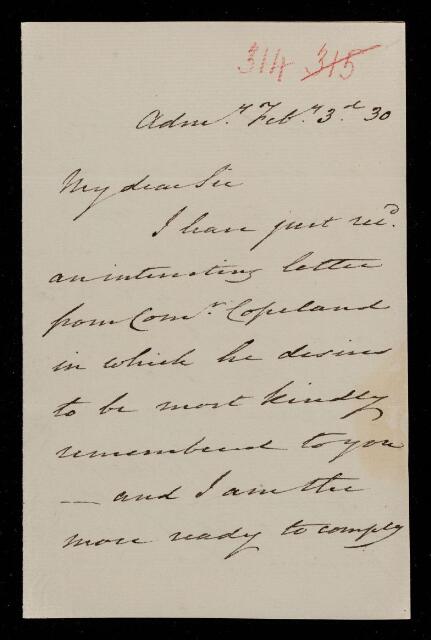 314 315
Adm.y Feb.y 3.d 30
My dear Sir
I have just rec.d
an interesting letter
from Com.r Copeland
in which he desires
to be most kindly
remembered to you
— and I am the
more ready to comply